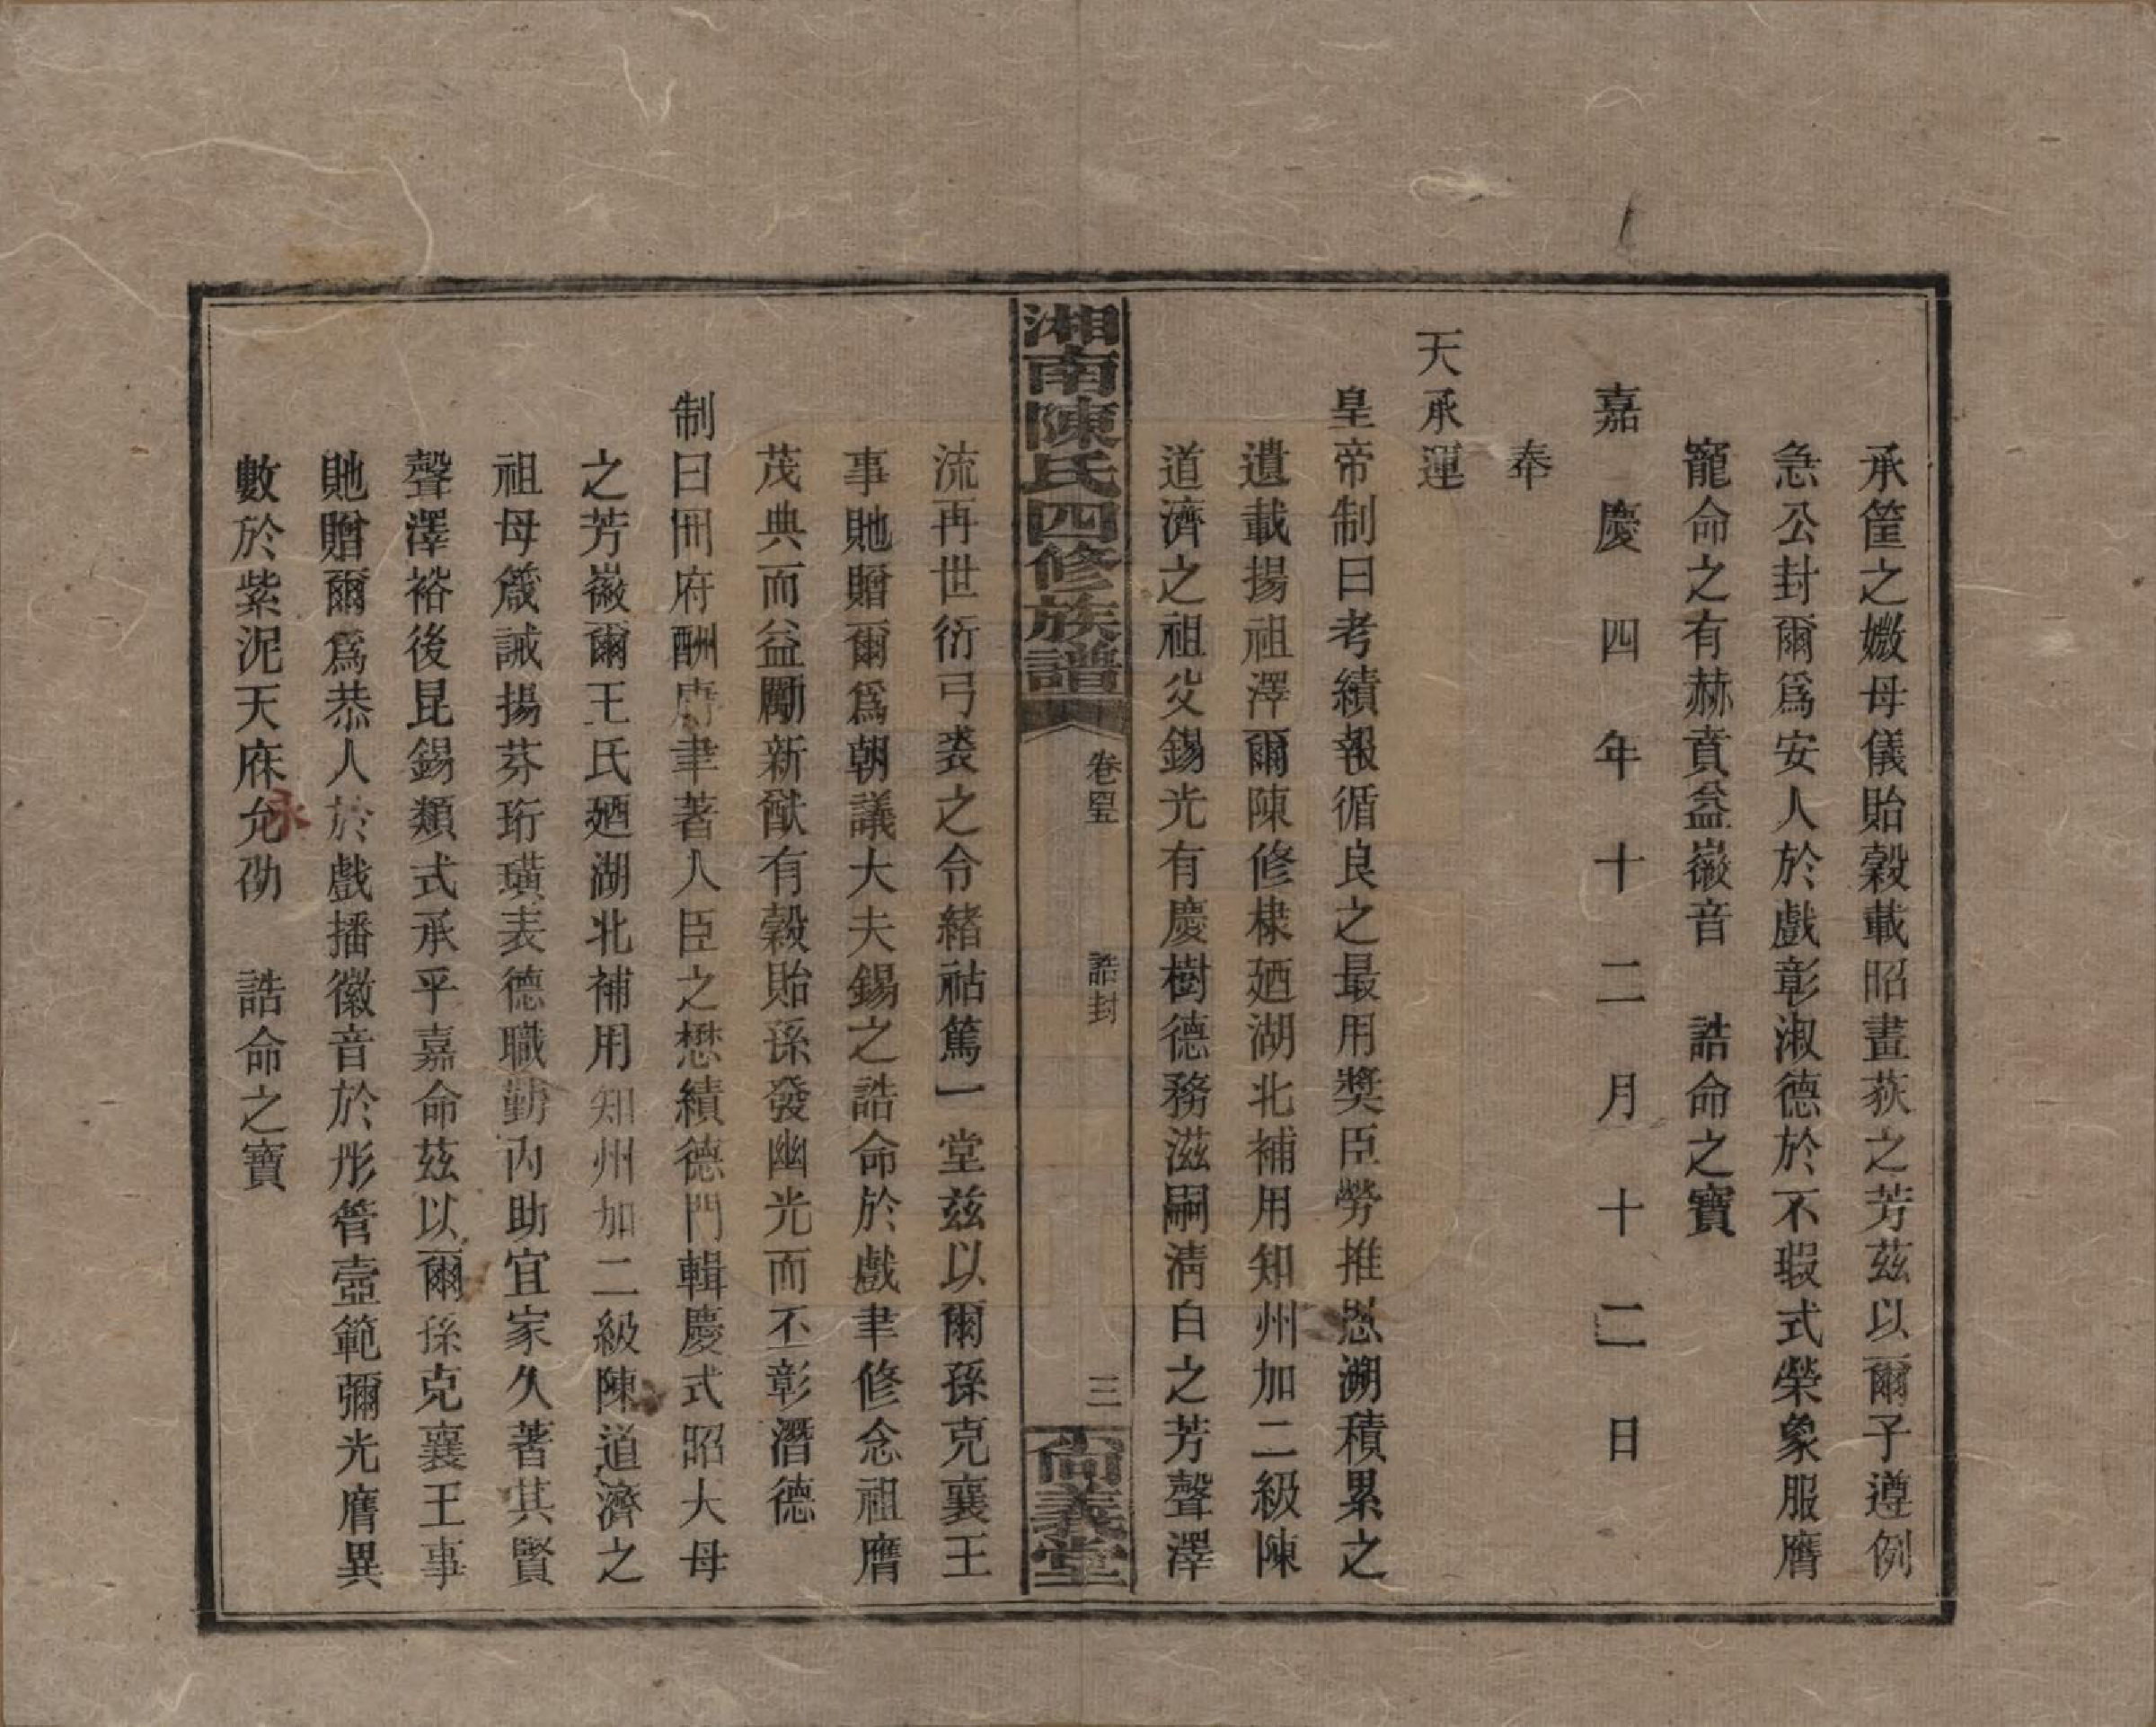 承筐之媺母儀貽穀載昭畫荻之芳茲以爾子遵例
急公封爾爲安人於戲彰淑德於不瑕式榮象服膺
寵命之有赫賁益徽音　誥命之寶
嘉慶四年十二月十二日
奉
天承運
皇帝制曰考績報循良之最用獎臣勞推恩溯積累之
遺載揚祖澤爾陳修棣廼湖北補用知州加二級陳
道濟之祖父錫光有慶樹德務滋嗣淸白之芳聲澤
湘南陳氏四修族譜
卷五
誥封
三
尙義堂
流再世衍弓裘之令緖祜篤一堂茲以爾孫克襄王
事貤贈爾爲朝議大夫錫之誥命於戲聿修念祖膺
茂典而益勵新猷有穀貽孫發幽光而丕彰潛德
制曰冊府酬庸聿著人臣之懋績德門輯慶式昭大母
之芳徽爾王氏廼湖北補用知州加二級陳道濟之
祖母箴誡揚芬珩璜表德職勤內助宜家久著其賢
聲澤裕後昆錫類式承乎嘉命茲以爾孫克襄王事
貤贈爾爲恭人於戲播徽音於彤管壼範彌光膺異
數於紫泥天庥允劭　誥命之寶